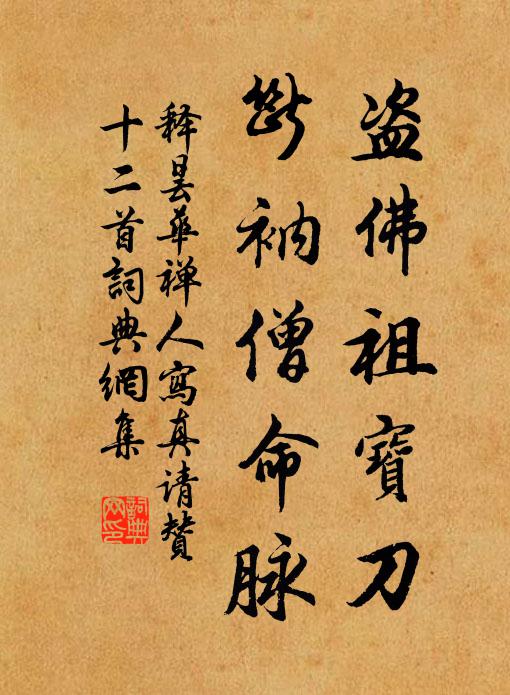 盗佛祖寶刀
斷衲僧命脉
釋曇華禅人寫真请贊
十二首詞典網集
詞典
网印